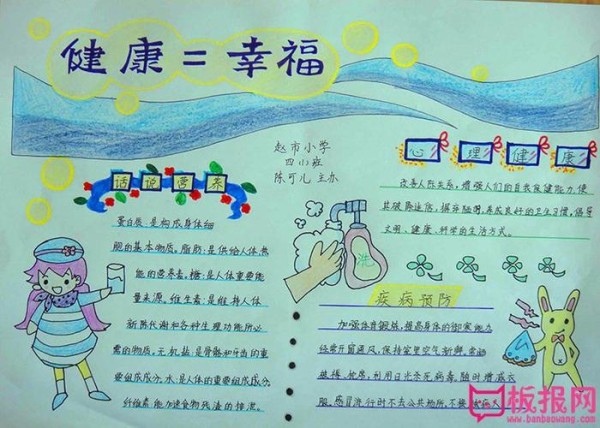 健康=幸福
赵市小学
四(1)班
陈可儿 主办
话说营养
蛋白质:是构成身体细
胞的基本物质。脂肪:是供给人体热
能的营养素。糖:是人体重要能
量来源。维生素:是维持人体
新陈代谢和各种生理功能所必
需的物质。无机盐:是骨骼和牙齿的重
要组成成分。水:是人体的重要组成成分。
纤维素:能加速食物残渣的排泄。
心理健康
改善人际关系,增强人们的自我保健能力,使
其破除迷信,摒弃陋习,养成良好的卫生习惯,倡导
文明、健康、科学的生活方式。
洗
疾病预防
加强体育锻炼,提高身体的御寒能力
经常开窗通风,保持室里空气新鲜,常晒
被褥、枕席,利用日光杀死病毒,随时增减衣
服,感冒流行时不去公共场所,不接
板报网
www.banbaowang.com